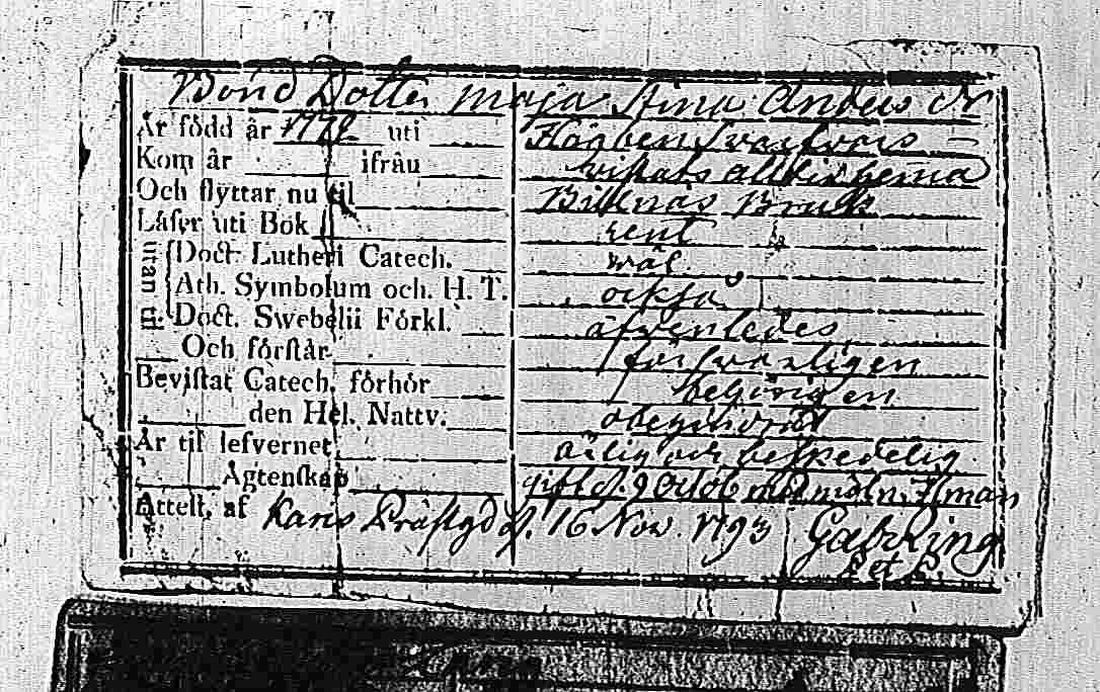 Bond Dotter Maja Stina Anders Dr
Är född år 1772 uti Högben Svartvars
Kom år ifrån vistats altid hemma
Och flyttar nu til Billnäs Bruk
Läser uti Bok rent
utan til Doct. Lutheri Catech. wäl
Ath. Symbolum och. H. T. också
Doct. Swebelii Förkl. äfvenledes
Och förstår försvarligen
Bevistat Catech. förhör
den Hel. Nattv. obehindrat
Är til lefvernet ärlig och beskedelig
Ägtenskap gift d. 9 Octob med
Attest. af Karis Prästgd d. 16 Nov. 1793